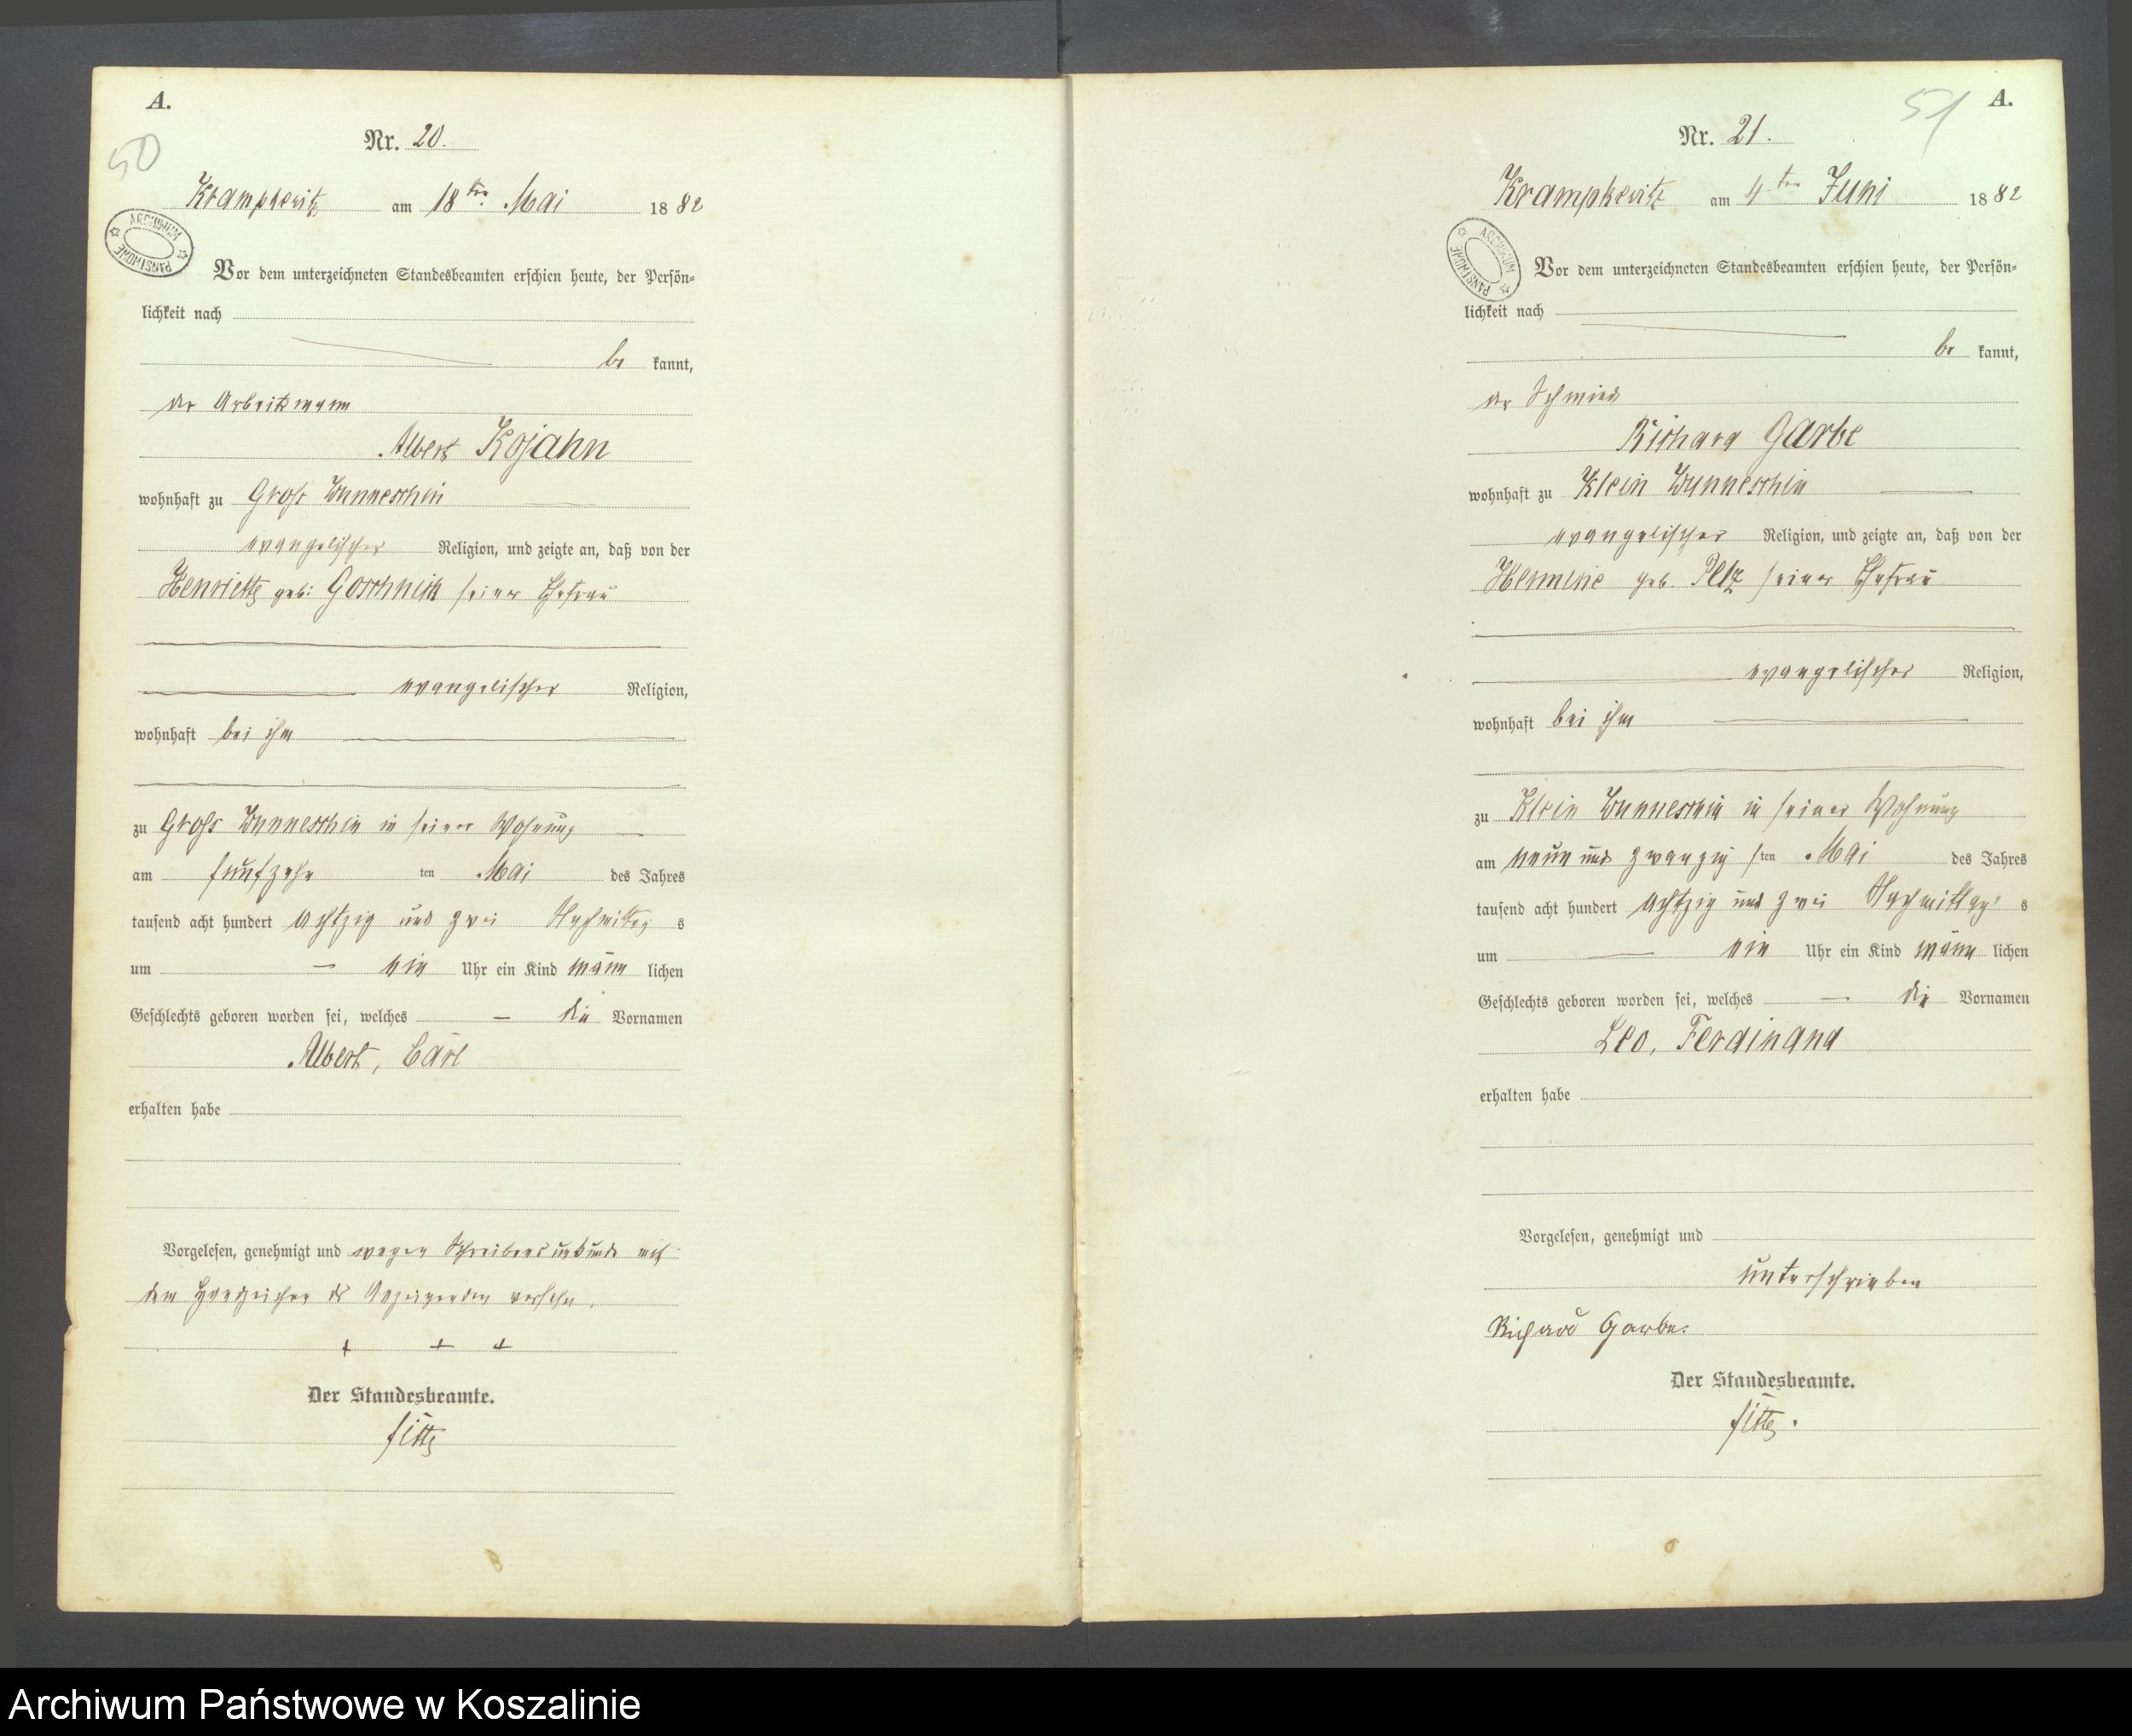 A.
50
Nr. 20.
Krampkewitz am 18ten Mai 1882
ARCHIWUM PAŃSTWOWE
Vor dem unterzeichneten Standesbeamten erschien heute, der Persön-
lichkeit nach
be kannt,
der Arbeitsmann
Albert Kojahn
wohnhaft zu Groß Wunneschin
evangelischer Religion, und zeigte an, daß von der
Henriette geb: Goschnick seiner Ehefrau
evangelischer Religion,
wohnhaft bei ihm
zu Groß Wunneschin in seiner Wohnung
am fünfzehn ten Mai des Jahres
tausend acht hundert achtzig und zwei Nachmittag s
um ein Uhr ein Kind männ lichen
Geschlechts geboren worden sei, welches die Vornamen
Albert, Carl
erhalten habe
Vorgelesen, genehmigt und wegen Schreibensunkunde mit
dem Handzeichen des Anzeigenden versehen.
+ + +
Der Standesbeamte.
A.
51
Nr. 21.
Krampkewitz am 4ten Juni 1882
ARCHIWUM PAŃSTWOWE
Vor dem unterzeichneten Standesbeamten erschien heute, der Persön-
lichkeit nach
be kannt,
der Schmied
Richard Garbe
wohnhaft zu Klein Wunneschin
evangelischer Religion, und zeigte an, daß von der
Hermine geb. Pelz seiner Ehefrau
evangelischer Religion,
wohnhaft bei ihm
zu Klein Wunneschin in seiner Wohnung
am neun und zwanzig sten Mai des Jahres
tausend acht hundert achtzig und zwei Nachmittag s
um ein Uhr ein Kind männ lichen
Geschlechts geboren worden sei, welches die Vornamen
Leo, Ferdinand
erhalten habe
Vorgelesen, genehmigt und
unterschrieben
Richard Garbe.
Der Standesbeamte.
Archiwum Państwowe w Koszalinie